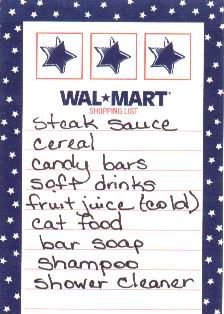 WAL★MART
SHOPPING LIST
steak sauce
cereal
candy bars
soft drinks
fruit juice (cold)
cat food
bar soap
shampoo
shower cleaner